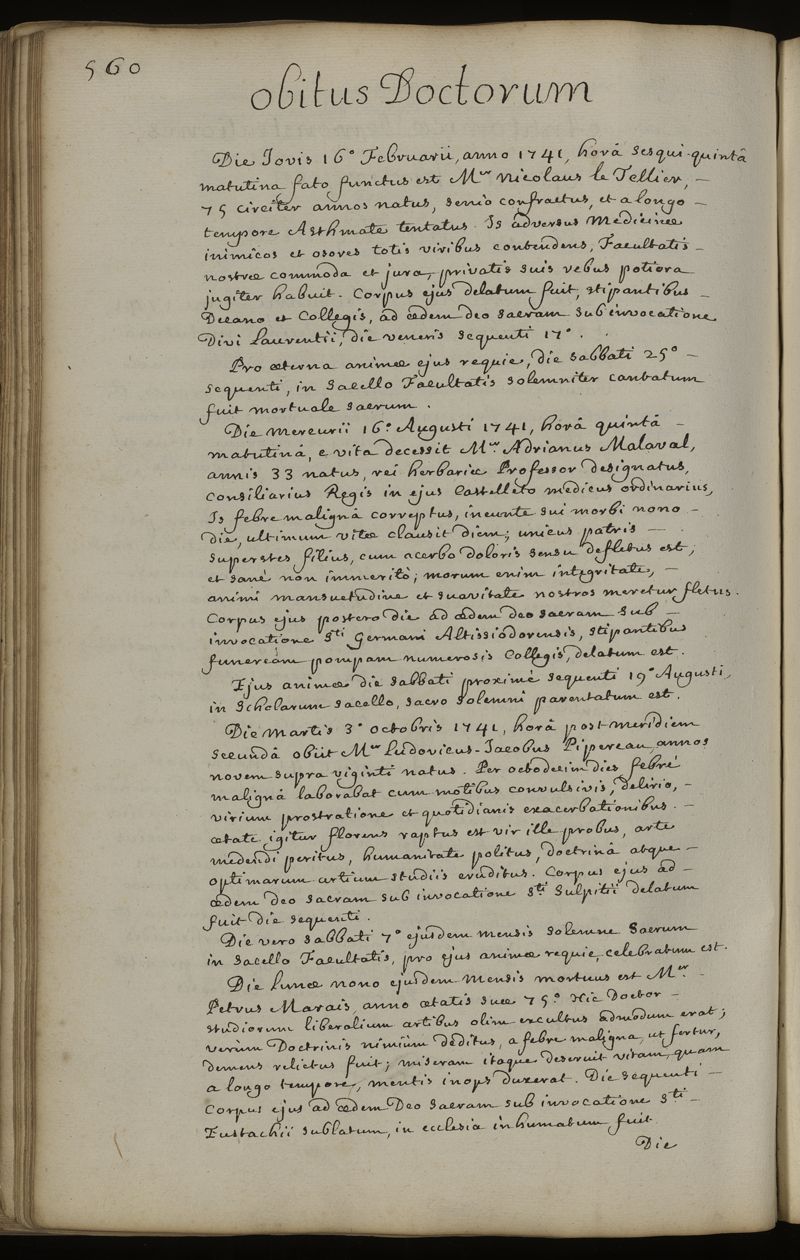 560
obitus Doctorum
Die Jovis 16° Februarii, anno 1741, horâ sesqui-quintâ
matutina fato functus est Mer Nicolaus le Tellier, –
75 circiter annos natus, senio confractus, et a longo –
tempore Asthmate tentatus. Is adversus Medicinæ
inimicos et osores totis viribus contendens, Facultatis –
nostræ commoda et jura, privatis suis rebus potiora
jugiter habuit. Corpus ejus delatum fuit, stipantibus –
Decano et Collegis, ad ædem deo sacram sub invocatione
Divi Laurentii, die veneris sequenti 17°.
Pro æterna animæ ejus requie, die sabbati 25° –
sequenti, in sacello Facultatis solemniter cantatum
fuit mortuale sacrum.
Die mercurii 16° Augusti 1741, horâ quintâ –
matutinâ, e vita decessit Mer Adrianus Malaval,
annis 33 natus, rei herbariæ Professor designatus,
Consiliarius Regis in ejus Castelleto medicus ordinarius,
Is febre malignâ correptus, ineunte sui morbi nono –
die, ultimum vitæ clausit diem; unicus patris –
superstes filius, cum acerbo doloris sensu defletus est;
et sanè non immeritò; morum enim integritate, –
animi mansuetudine et suavitate nostros meretur fletus.
Corpus ejus postero die ad ædem deo sacram sub –
invocatione Sti Germani Altissiodorensis, stipantibus
funeream pompam numerosis Collegis, delatum est.
Ejus animæ die sabbati proximè sequenti 19° Augusti,
in Scholarum sacello, sacro solemni parentatum est.
Die martis 3° octobris 1741, horâ post meridiem
secundâ obiit Mer Ludovicus-Jacobus Pijpereau annos
novem supra viginti natus. Per octodecim dies febre
malignâ laborabat cum motibus convulsivis, delirio, –
virium prostratione et quotidianis exacerbationibus. –
ætate igitur florens raptus est vir ille probus, arte
medendi peritus, humanitate politus, doctrinâ atque –
optimarum artium studiis eruditus. Corpus ejus ad –
ædem deo sacram sub invocatione Sti Sulpitii delatum
fuit die sequenti.
Die vero sabbati 7° ejusdem mensis solemne Sacrum
in sacello Facultatis, pro ejus animæ requie, celebratum est.
Die Lunæ nono ejusdem mensis mortuus est Mer –
Petrus Marais, anno ætatis suæ 75°. Hic Doctor –
studiorum liberalium artibus olim excultus admodum erat;
verùm Doctrinis nimiùm deditus, a febre maligna, ut fertur,
demens relictus fuit; miseram itaque deseruit vitam, quam
a longo tempore, mentis inops duxerat. Die sequenti –
Corpus ejus ad ædem Deo sacram sub invocatione Sti –
Eustachii sublatum, in ecclesia inhumatum fuit.
Die